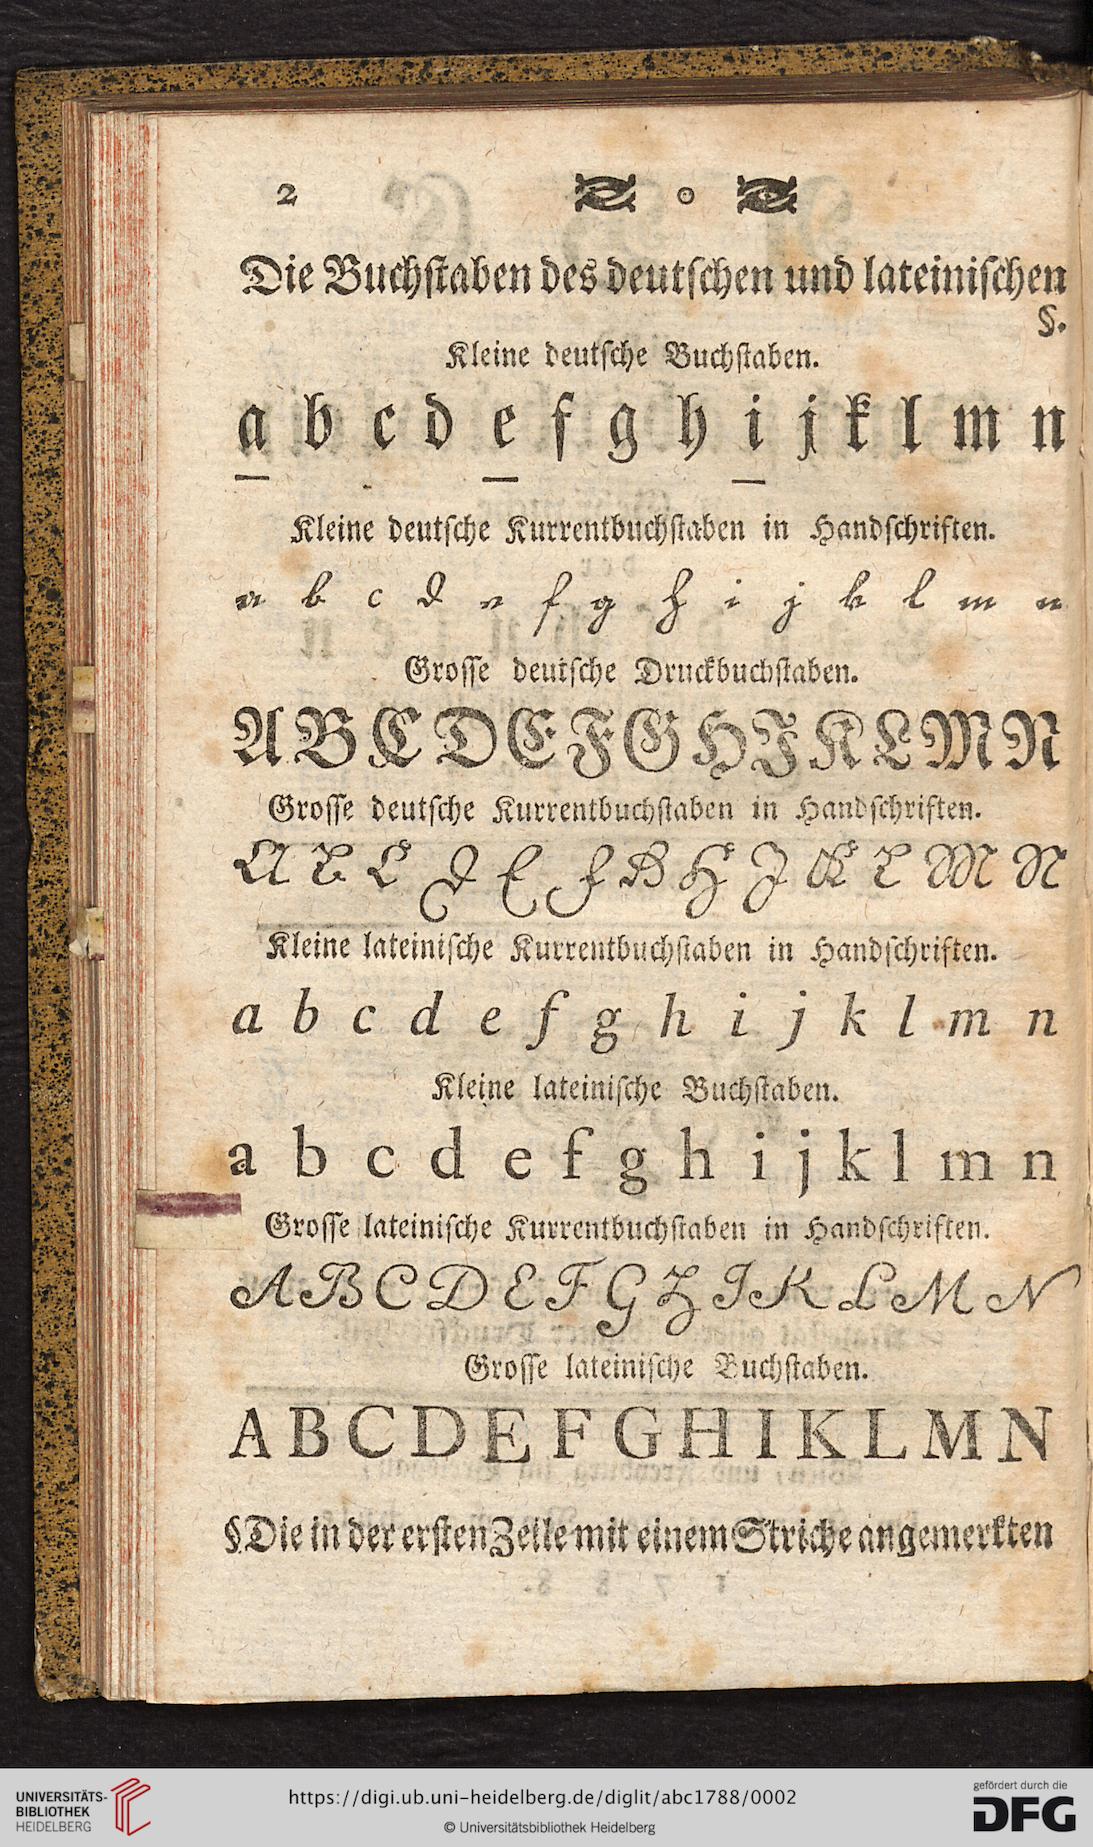 2
Die Buchstaben des deutschen und lateinischen
§.
Kleine deutsche Buchstaben.
a b c d e f g h i j k l m n
Kleine deutsche Kurrentbuchstaben in Handschriften.
a b c d e f g h i j k l m n
Grosse deutsche Druckbuchstaben.
A B C D E F G H I K L M N
Grosse deutsche Kurrentbuchstaben in Handschriften.
A B C D E F G H I K L M N
Kleine lateinische Kurrentbuchstaben in Handschriften.
a b c d e f g h i j k l m n
Kleine lateinische Buchstaben.
a b c d e f g h i j k l m n
Grosse lateinische Kurrentbuchstaben in Handschriften.
A B C D E F G H I K L M N
Grosse lateinische Buchstaben.
A B C D E F G H I K L M N
§ Die in der ersten Zeile mit einem Striche angemerkten
UNIVERSITÄTS-
BIBLIOTHEK
HEIDELBERG
https://digi.ub.uni-heidelberg.de/diglit/abc1788/0002
© Universitätsbibliothek Heidelberg
gefördert durch die
DFG